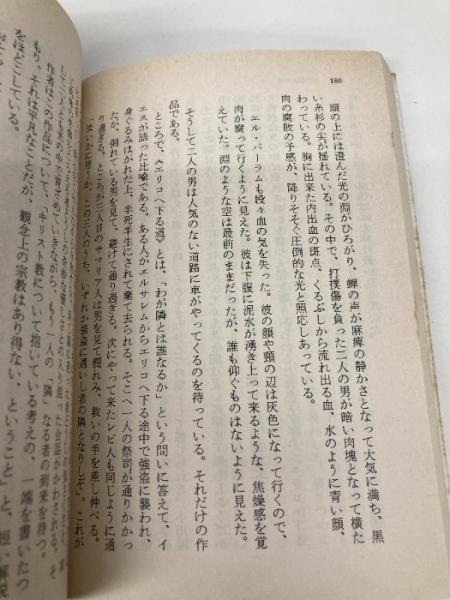 180
頭の上には澄んだ光の淵がひろがり、蝉の声が麻痺の静かさとなって大気に満ち、黒
い糸杉の尖が揺れている。その中で、打撲傷を負った二人の男が暗い肉塊となって横た
わっている。胸に出来た内出血の斑点、くるぶしから流れ出る血、水のように青い顔、
肉の腐敗の予感が、降りそそぐ圧倒的な光と照応しあっている。
エル・バーラムも段々血の気を失った。彼の顔や頸の辺は灰色になって行くので、
肉が腐って行くように見えた。彼は下腹に泥水が湧き上って来るような、焦燥感を覚
えていた。淵のような空は最前のままだったが、誰も仰ぐものはないように見えた。
そうして二人の男は人気のない道路に車がやってくるのを待っている。それだけの作
品である。
ところで、《エリコへ下る道》とは、「わが隣とは誰なるか」という問いに答えて、イ
エスが語った比喩である。ある人がエルサレムからエリコへ下る途中で強盗に襲われ、
身ぐるみはがれた上、半死半生にされて棄て去られる。そこへ一人の祭司が通りかかっ
たが、倒れている男を見て、避けて通り過ぎる。次にやって来たレビ人も同じように通
り過ぎる。ところが三人目のサマリア人は男を見て憫れみ、救いの手を差し伸べる。
「汝いかに思うか、この三人のうち、いずれか強盗に遇いし者の隣となりしぞ」これが
して二人とも光の中で
なる者の到来を待つ。
作者はこの作品について、「キリスト教について抱いている考えの、端を書いたつ
もり、それは平凡なことだが、観念上の宗教はあり得ない、ということ」と、短い解説
をほどこしている。